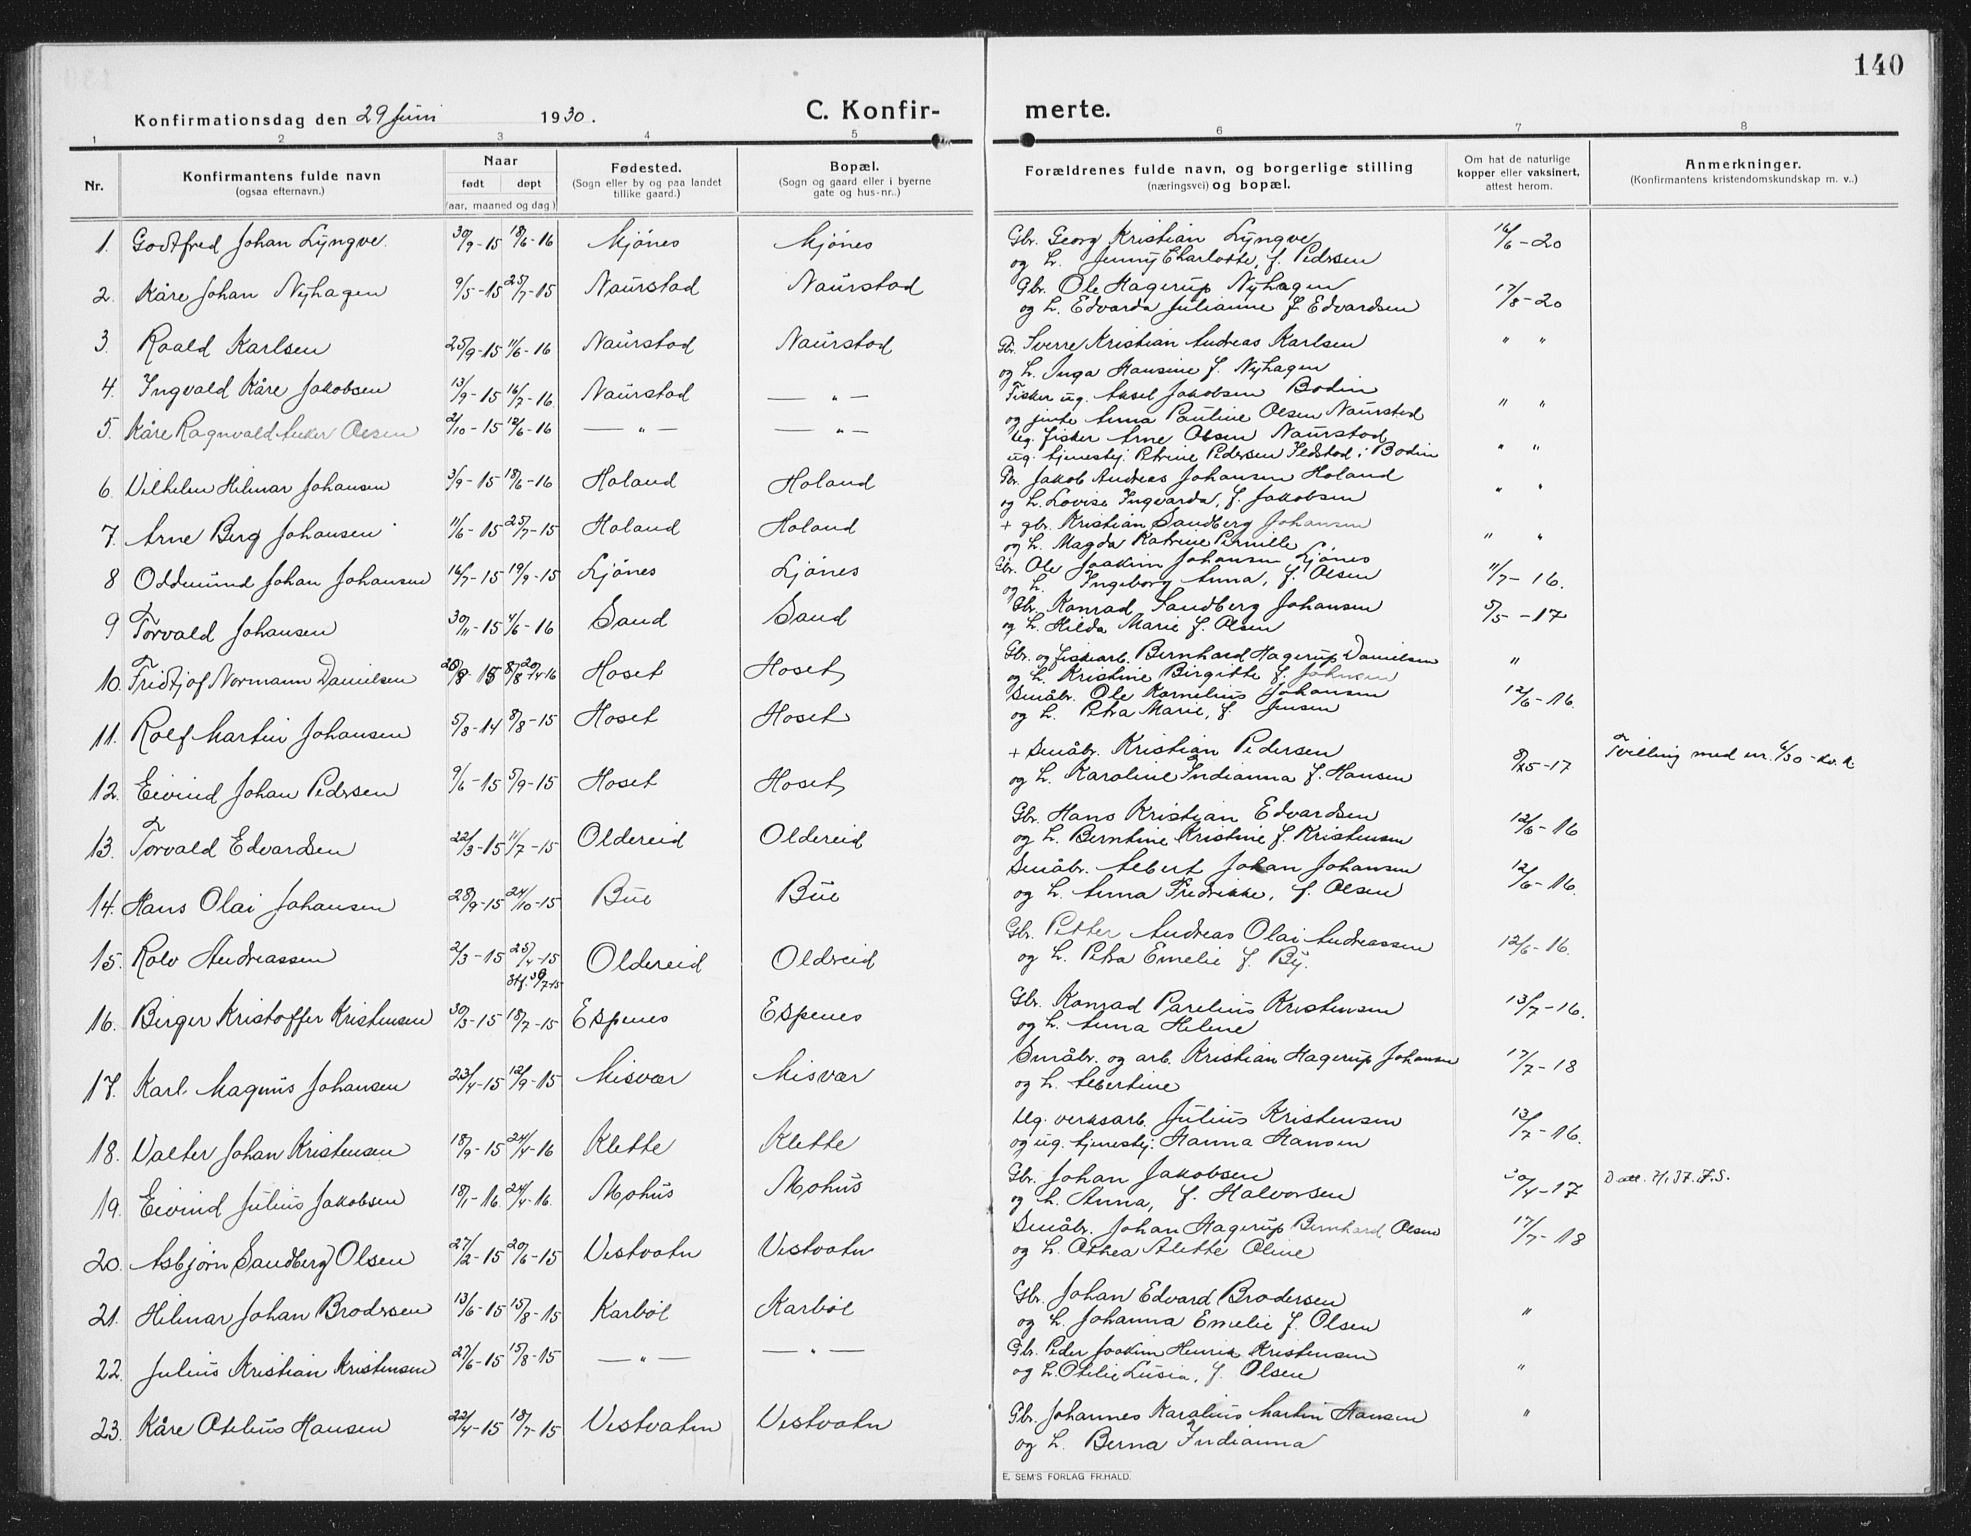 140
Konfirmationsdag den 29 juni 1930. C. Konfirmerte.
1 2 3 4 5 6 7 8
Nr.
Konfirmantens fulde navn
(ogsaa efternavn.)
Naar
født døpt
(aar, maaned og dag)
Fødested.
(Sogn eller by og paa landet
tillike gaard.)
Bopæl.
(Sogn og gaard eller i byerne
gate og hus-nr..)
Forældrenes fulde navn, og borgerlige stilling
(næringsvei) og bopæl.
Om hat de naturlige
kopper eller vaksinert,
attest herom.
Anmerkninger.
(Konfirmantens kristendomskundskap m. v..)
1. Godtfred Johan Lyngve. 30/9-15 18/6-16 Mjönes Mjönes Gbr. Georg Kristian Lyngve 16/6-20
og h. Jenny Charlotte, f. Pedersen
2. Kåre Johan Nyhagen 9/5-15 25/7-15 Naurstad Naurstad Gbr. Ole Hagerup Nyhagen 17/8-20
og h. Edvarda Julianne f. Edvardsen
3. Roald Karlsen 25/9-15 11/6-16 Naurstad Naurstad Gbr. Sverre Kristian Andreas Karlsen " "
og h. Inga Hansine f. Nyhagen
4. Ingvald Kåre Jakobsen 13/9-15 16/7-16. Naurstad — " — Fisker ug. Aksel Jakobsen Bodin " "
og pike Anna Pauline Olsen Naurstad
5. Kåre Ragnvald Anker Olsen 2/10-15 12/6-16 — " — — " — Ug. fisker Arne Olsen Naurstad " "
ug. tjenestepj. Petrine Pedersen Seldstad i Bodin
6. Vilhelm Hilmar Johansen 3/9-15 18/6-16 Holand Holand Gbr. Jakob Andreas Johansen Holand " "
og h. Lovise Ingvarda, f. Jakobsen
7. Arne Berg Johansen 11/6-15 25/7-15 Holand Holand + gbr. Kristian Sandberg Johansen " "
og h. Magda Katrine Pernille
8 Oddmund Johan Johansen 16/7-15 19/9-15 Ljönes Ljönes Gbr. Ole Joakim Johansen Ljönes 11/7-16.
og h. Ingeborg Anna, f. Olsen
9 Torvald Johansen 30/11-15 4/6-16 Sand Sand Gbr. Konrad Sandberg Johansen 5/5-17
og h. Hilda Marie f. Olsen
10. Fridtjof Normann Danielsen 28/8-15 8/8 20/4-16 Hoset Hoset Gbr. og fiskarb. Bernhard Hagerup Danielsen "
og h. Kristine Birgitte f. Johnsen
11. Rolf Martin Johansen 5/8-14 8/8-15 Hoset Hoset Småbr. Ole Kornelius Johansen 12/6-16.
og h. Petra Marie, f. Jensen
12. Eivind Johan Pedersen 9/6-15 5/9-15 Hoset Hoset + Småbr. Kristian Pedersen Tvilling med nr. 6/30-kv.k
og h. Karoline Indianna f. Hansen
13. Torvald Edvardsen 22/3-15 11/7-15 Oldereid Oldereid Gbr. Hans Kristian Edvardsen 12/6-16
og h. Berntine Kristine f. Kristensen
14. Hans Olai Johansen 28/9-15 24/10-15 Bue Bue Småbr. Albert Johan Johansen 12/6-16.
og h. Anna Fredrikke, f. Olsen
15. Rolv Andreassen 2/3-15 25/4-15 Oldereid Oldreid Gbr. Petter Andreas Olai Andreassen 12/6-16.
og h. Petra Emelie f. By.
16. Birger Kristoffer Kristensen 30/3-15 18/7-15 Espenes Espenes Gbr. Konrad Parelius Kristensen 13/7-16.
og h. Anna Heline
17. Karl Magnus Johansen 23/4-15 12/9-15 Misvær Misvær Småbr. og arb. Kristian Hagerup Johansen 17/7-18
og h. Albertine
18. Valter Johan Kristensen 18/9-15 24/4-16 Klette Klette Ug. verksarb. Julius Kristensen 13/7-16.
og ug. tjenestepj. Hanna Hansen
19. Eivind Julius Jakobsen 18/1-16. 24/4-16. Mohus Mohus Gbr. Johan Jakobsen 30/4-17 Datt. 2/1 37. F.S.
og h. Anna, f. Halvorsen
20. Asbjørn Sandberg Olsen 27/2-15 20/6-15 Vestvatn Vestvatn Småbr. Johan Hagerup Bernhard Olsen 17/7-18
og h. Othea Alette Oline
21. Hilmar Johan Brodersen 13/6-15 15/8-15 Karböl Karböl Gbr. Johan Edvard Brodersen "
og h. Johanna Emelie f. Olsen
22. Julius Kristian Kristensen 27/6-15 15/8-15 — " — — " — Gbr. Peder Joakim Henrik Kristensen "
og h. Otelie Lusia, f. Olsen
23. Kåre Otelius Hansen 22/4-15 18/7-15 Vestvatn Vestvatn Gbr. Johannes Karelius Martin Hansen "
og h. Berna Indianna
E. SEM'S FORLAG FR.HALD.